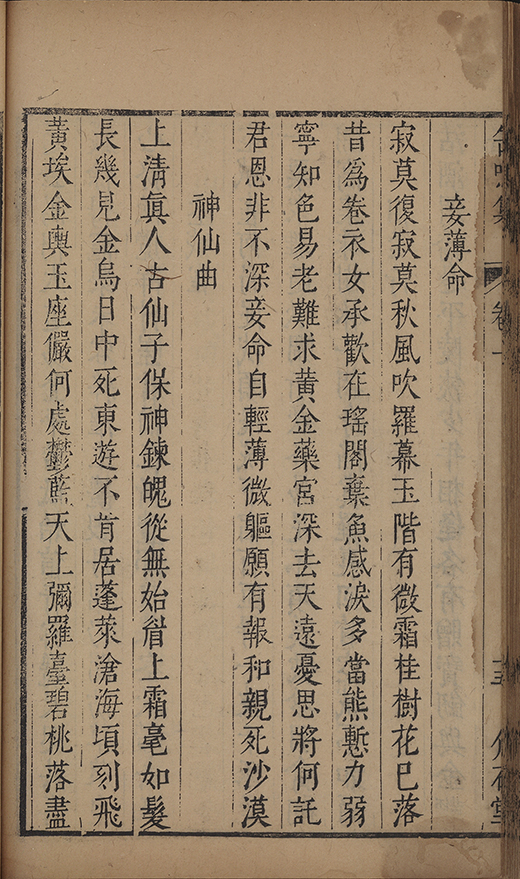 卷一
妾薄命
寂莫復寂莫秋風吹羅幕玉階有微霜桂樹花已落
昔爲卷衣女承歡在瑤閣棄魚感淚多當熊慙力弱
寧知色易老難求黄金藥宮深去天遠憂思將何託
君恩非不深妾命自輕薄微軀願有報和親死沙漠
神仙曲
上清真人古仙子保神鍊魄從無始眉上霜毫如髮
長幾見金烏日中死東遊不肯居蓬萊滄海頃刻飛
黄埃金輿玉座儼何處鬱藍天上彌羅臺碧桃落盡